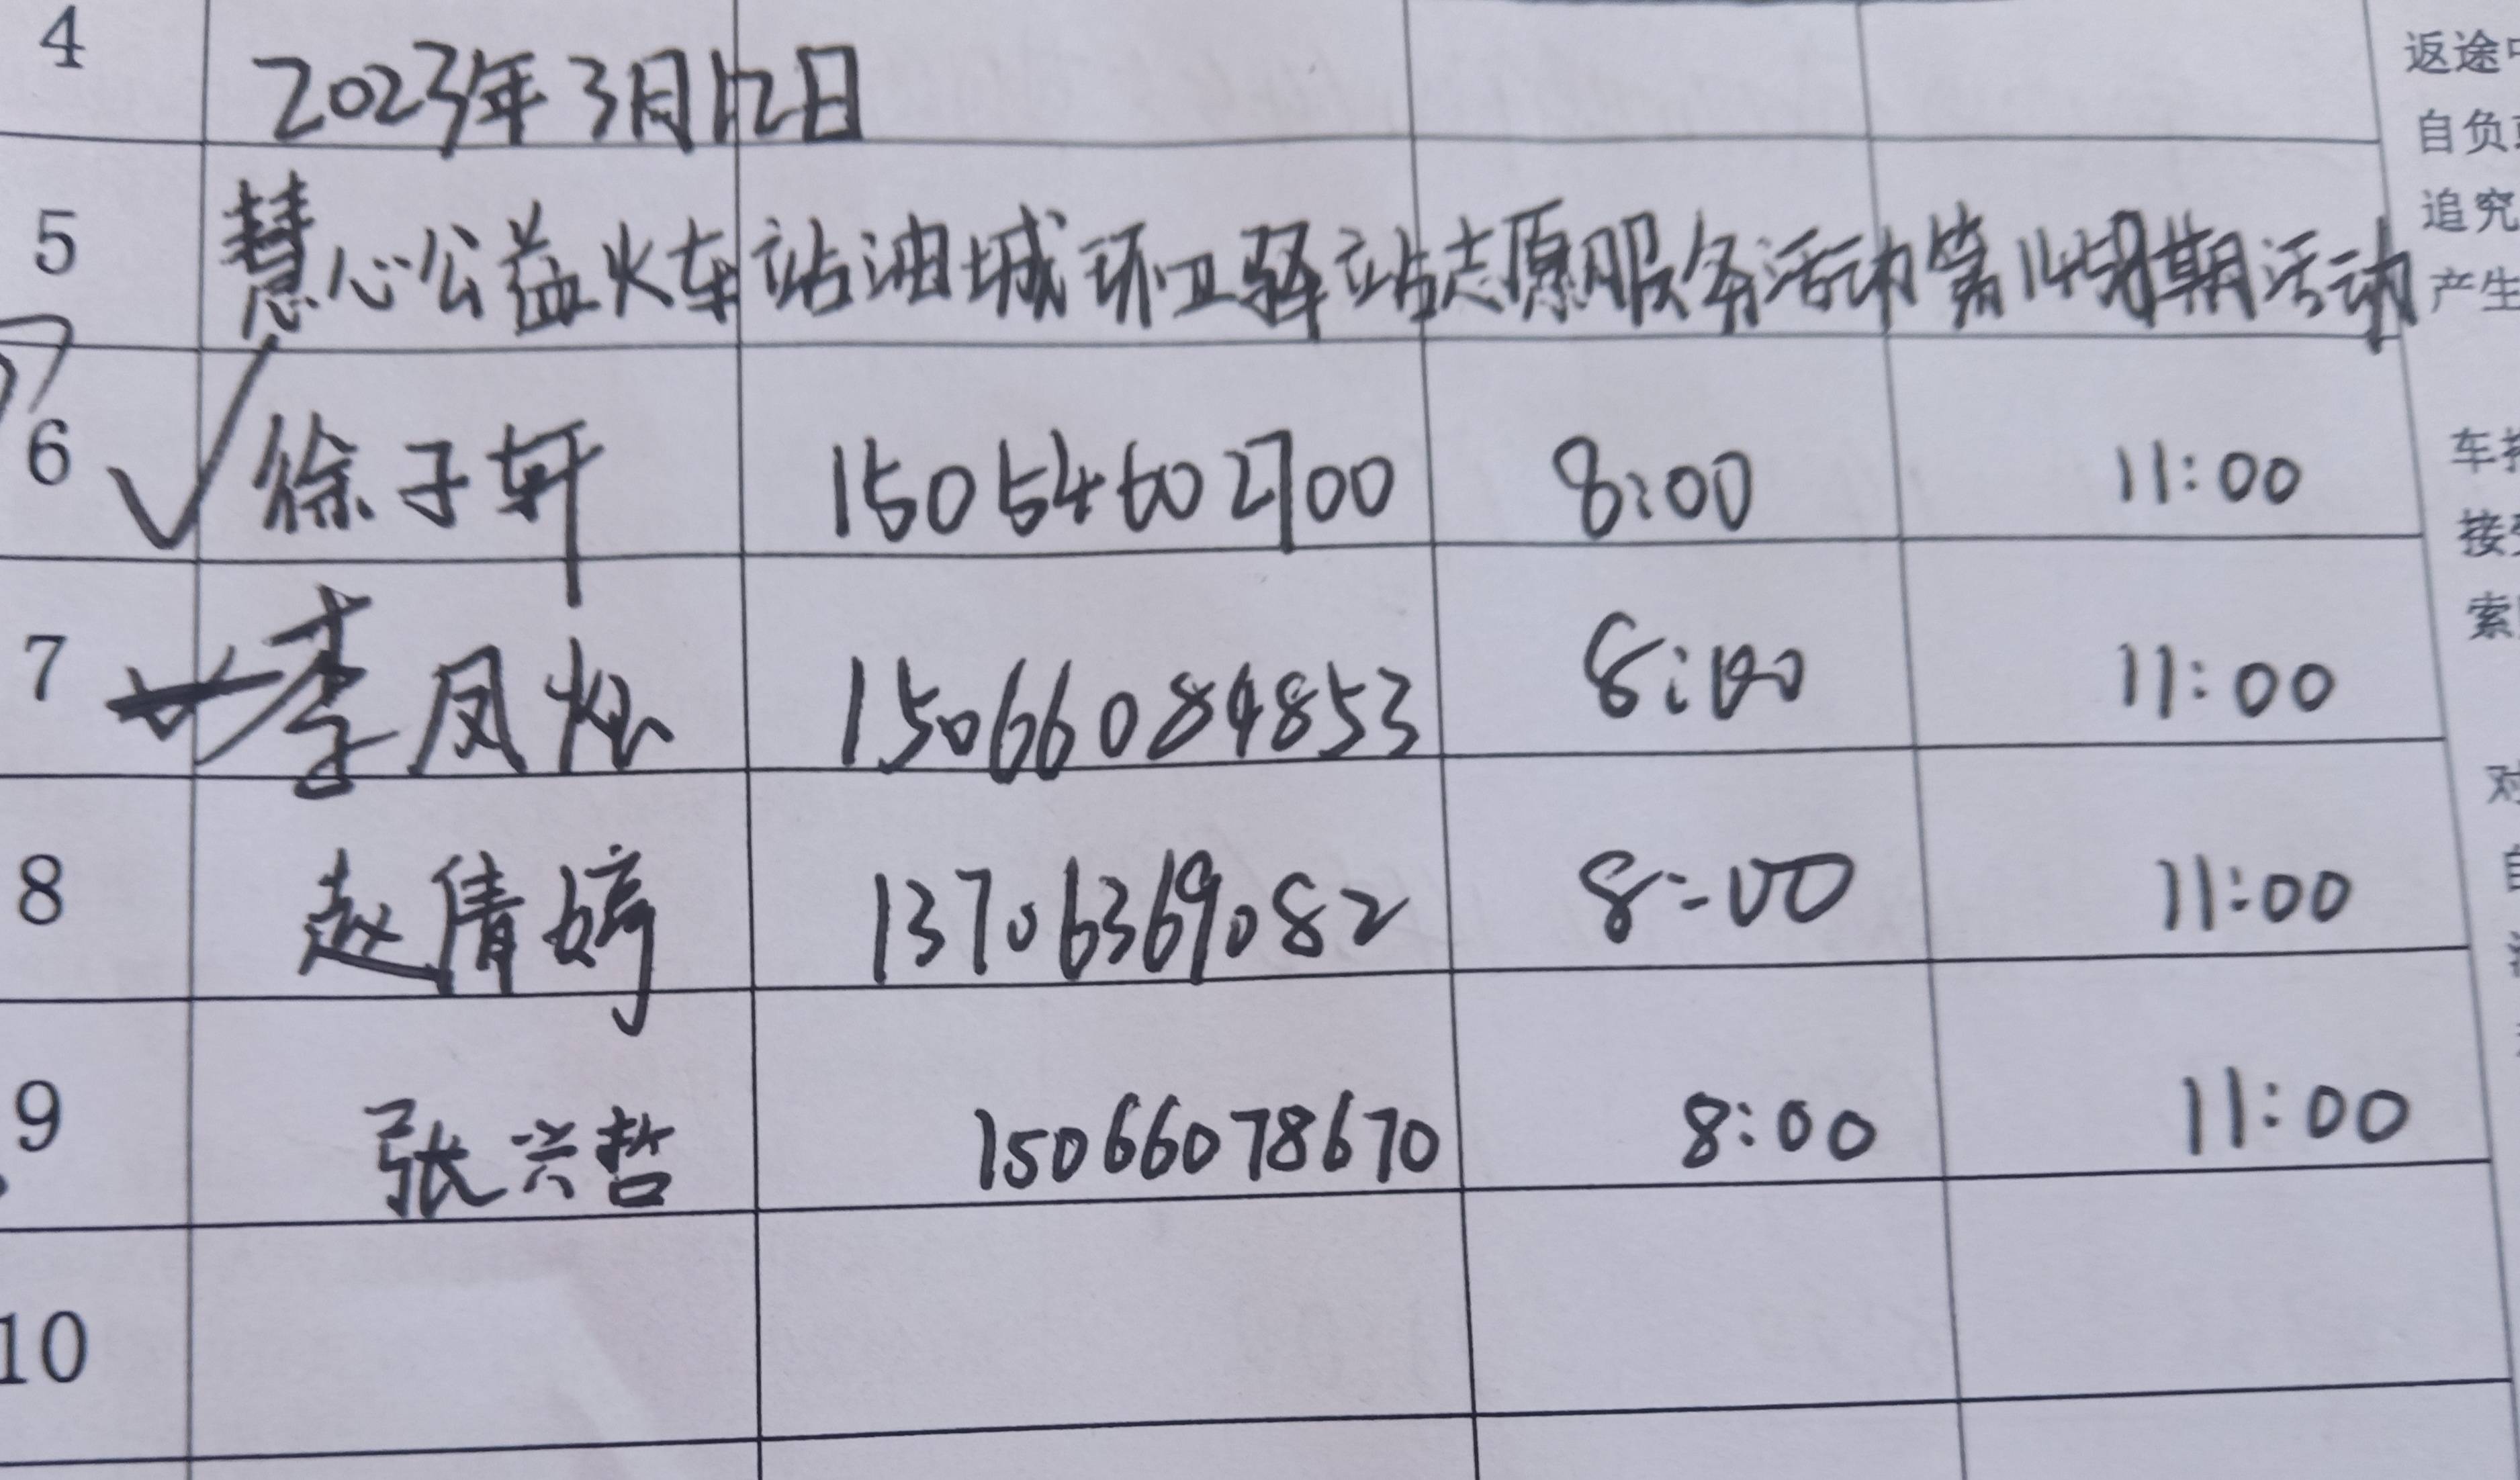 4 2023年3月12日
返途中
自负
5 慧心公益火车站油城环卫驿站志愿服务活动第145期活动
追究
产生
6 徐子轩 15054602700 8:00 11:00
车
接受
7 李凤 15066084853 8:00 11:00
索
8 赵倩婷 13706369082 8:00 11:00
对
自
9 张兴哲 15066078670 8:00 11:00
10